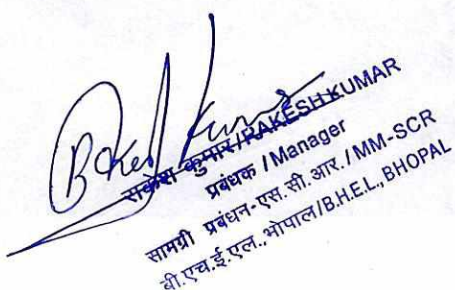 राकेश कुमार/RAKESH KUMAR
प्रबंधक / Manager
सामग्री प्रबंधन-एस.सी.आर./MM-SCR
बी.एच.ई.एल.,भोपाल/B.H.E.L., BHOPAL